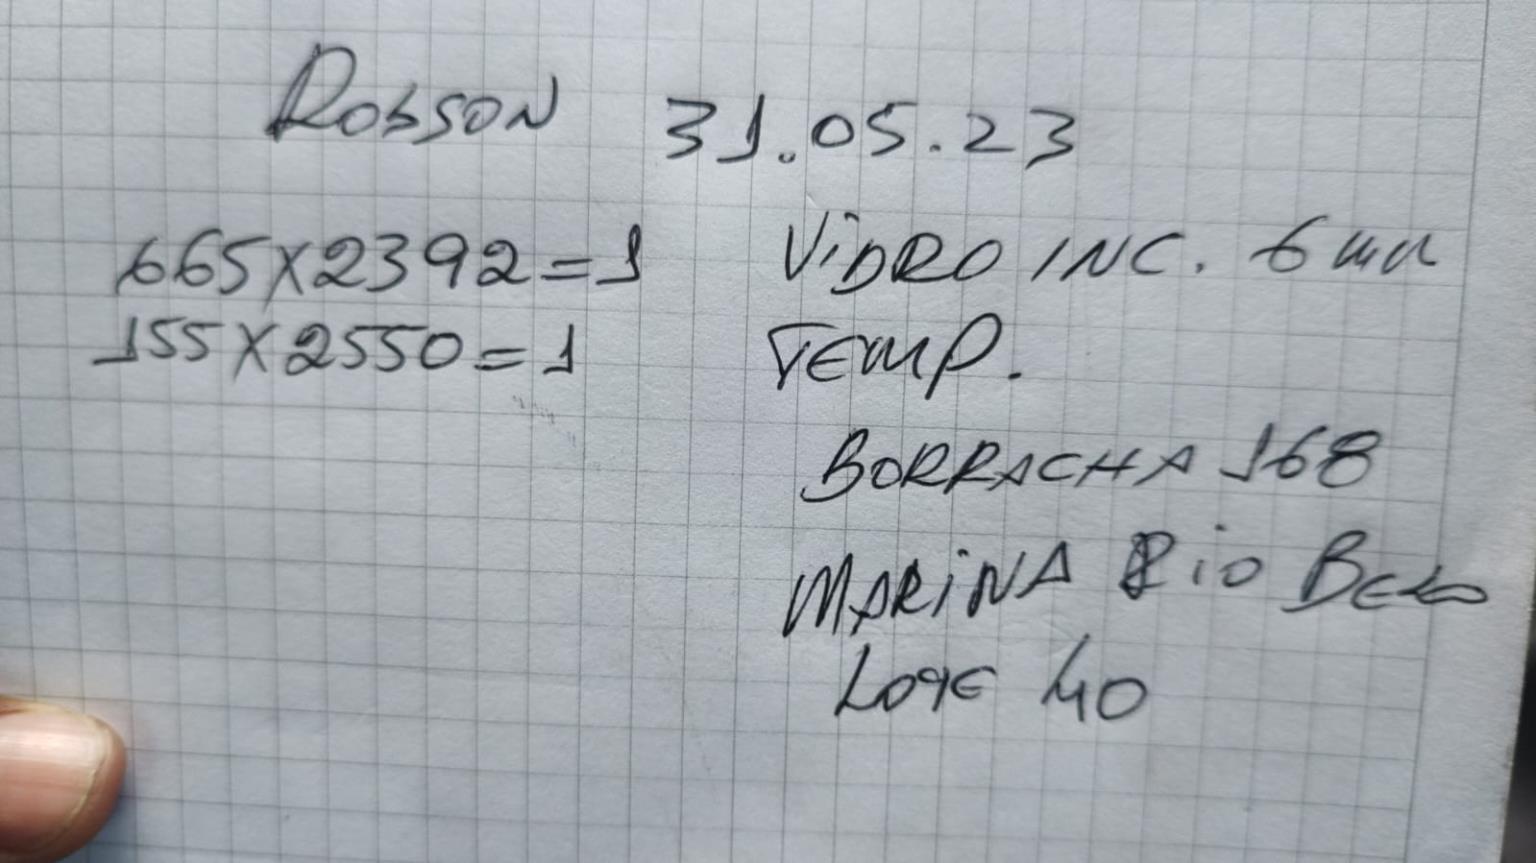 ROBSON 31.05.23
665X2392=1 VIDRO INC. 6mm
155X2550=1 TEMP.
BORRACHA 168
MARINA Rio BELO
LOTE 40